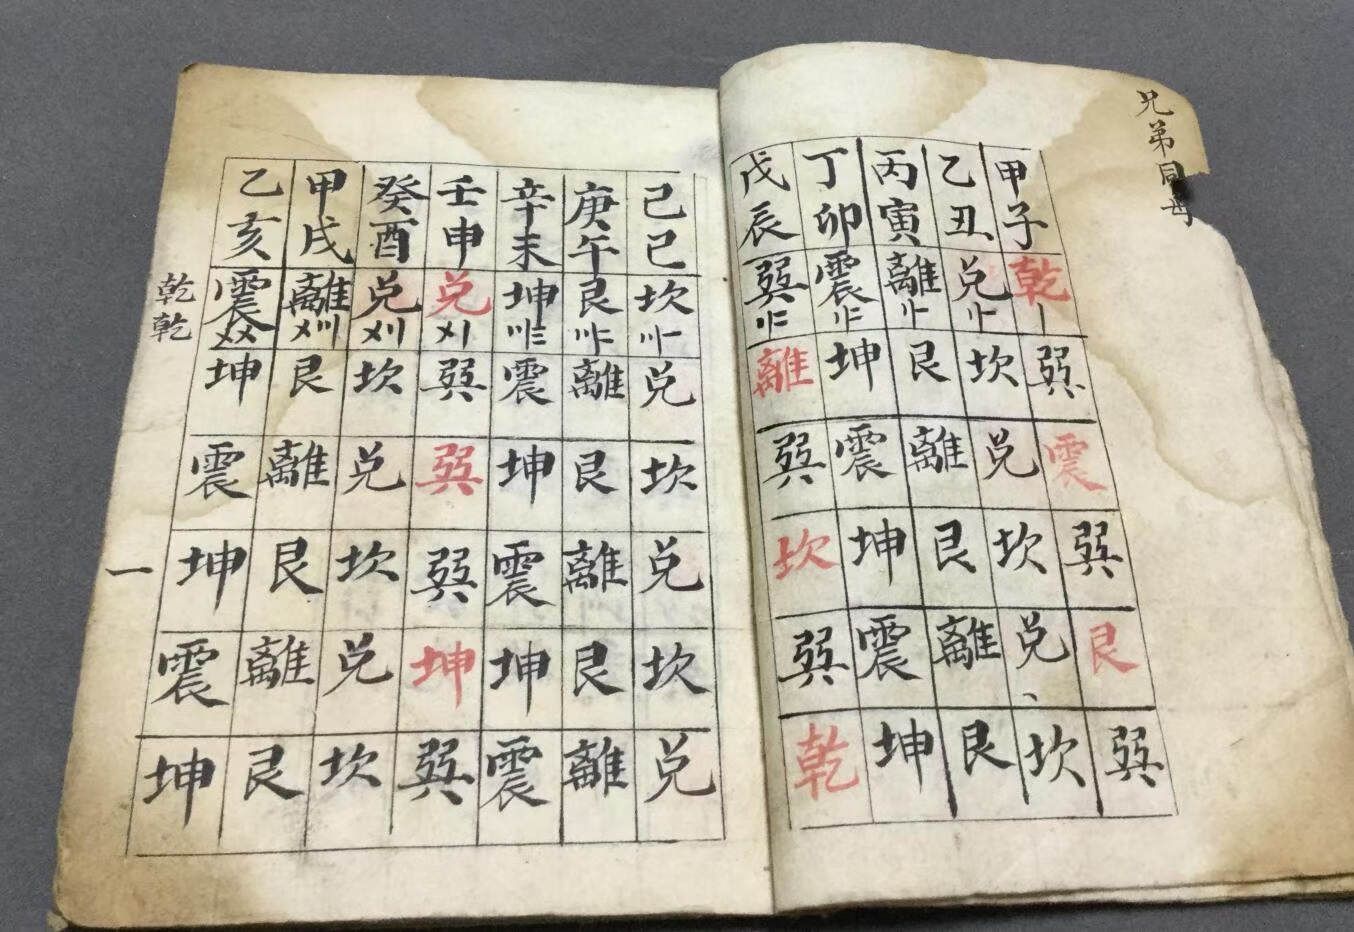 兄弟同母
甲子 乾 巽 震 巽 艮 巽
乙丑 兑 坎 兑 坎 兑 坎
丙寅 離 艮 離 艮 離 艮
丁卯 震 坤 震 坤 震 坤
戊辰 巽 離 巽 坎 巽 乾
己巳 坎 兑 坎 兑 坎 兑
庚午 艮 離 艮 離 艮 離
辛未 坤 震 坤 震 坤 震
壬申 兑 巽 巽 巽 坤 巽
癸酉 兑 坎 兑 坎 兑 坎
甲戌 離 艮 離 艮 離 艮
乙亥 震 坤 震 坤 震 坤
乾乾 一